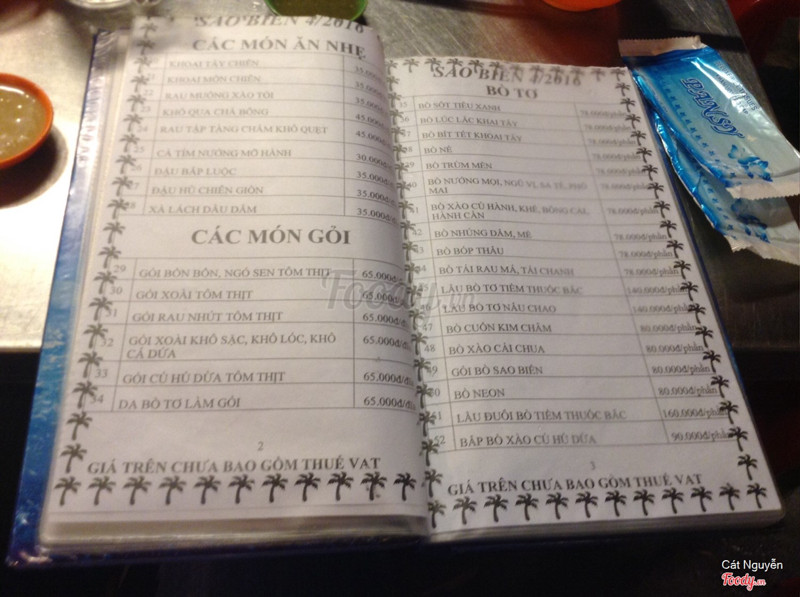 SAO BIỂN 4/2016
CÁC MÓN ĂN NHẸ
KHOAI TÂY CHIÊN 35.000
KHOAI MÔN CHIÊN 35.000
22 RAU MUỐNG XÀO TỎI 35.000
23 KHỔ QUA CHÀ BÔNG 45.000
24 RAU TẬP TÀNG CHẤM KHO QUẸT 45.000
25 CÀ TÍM NƯỚNG MỠ HÀNH 30.000đ
ĐẬU BẮP LUỘC 35.000đ
27 ĐẬU HỦ CHIÊN GIÒN 35.000đ
28 XÀ LÁCH DẦU DẤM 35.000đ
CÁC MÓN GỎI
29 GỎI BỒN BỒN, NGÓ SEN TÔM THỊT 65.000đ/đ
30 GỎI XOÀI TÔM THỊT 65.000đ/đ
31 GỎI RAU NHÚT TÔM THỊT 65.000đ/đ
32 GỎI XOÀI KHÔ SẶC, KHÔ LÓC, KHÔ CÁ DỨA 65.000đ/đ
33 GỎI CỦ HỦ DỪA TÔM THỊT 65.000đ/đ
34 DA BÒ TƠ LÀM GỎI 65.000đ/đĩa
2
GIÁ TRÊN CHƯA BAO GỒM THUẾ VAT
SAO BIỂN 4/2016
BÒ TƠ
35 BÒ SỐT TIÊU XANH 78.000đ/phần
36 BÒ LÚC LẮC KHAI TÂY 78.000đ/phần
37 BÒ BÍT TẾT KHOAI TÂY 78.000đ/phần
38 BÒ NÉ 78.000đ/phần
39 BÒ TRÙM MỀN 78.000đ/phần
40 BÒ NƯỚNG MỌI, NGŨ VỊ, SA TẾ, PHÔ MAI 78.000đ/phần
41 BÒ XÀO CỦ HÀNH, KHẾ, BÔNG CẢI, HÀNH CẦN 78.000đ/phần
42 BÒ NHÚNG DẤM, MẺ 78.000đ/phần
43 BÒ BÓP THẤU 78.000đ/phần
44 BÒ TÁI RAU MÁ, TÁI CHANH 78.000đ/phần
LẨU BÒ TƠ TIỀM THUỐC BẮC 140.000đ/phần
46 LẨU BÒ TƠ NẤU CHAO 140.000đ/phần
47 BÒ CUỘN KIM CHÂM 80.000đ/phần
48 BÒ XÀO CẢI CHUA 80.000đ/phần
49 GỎI BÒ SAO BIỂN 80.000đ/phần
50 BÒ NEON 80.000đ/phần
51 LẨU ĐUÔI BÒ TIỀM THUỐC BẮC 160.000đ/phần
52 BẮP BÒ XÀO CỦ HỦ DỪA 90.000đ/phần
3
GIÁ TRÊN CHƯA BAO GỒM THUẾ VAT
PANSY
Foody.vn
Cát Nguyễn
Foody.vn